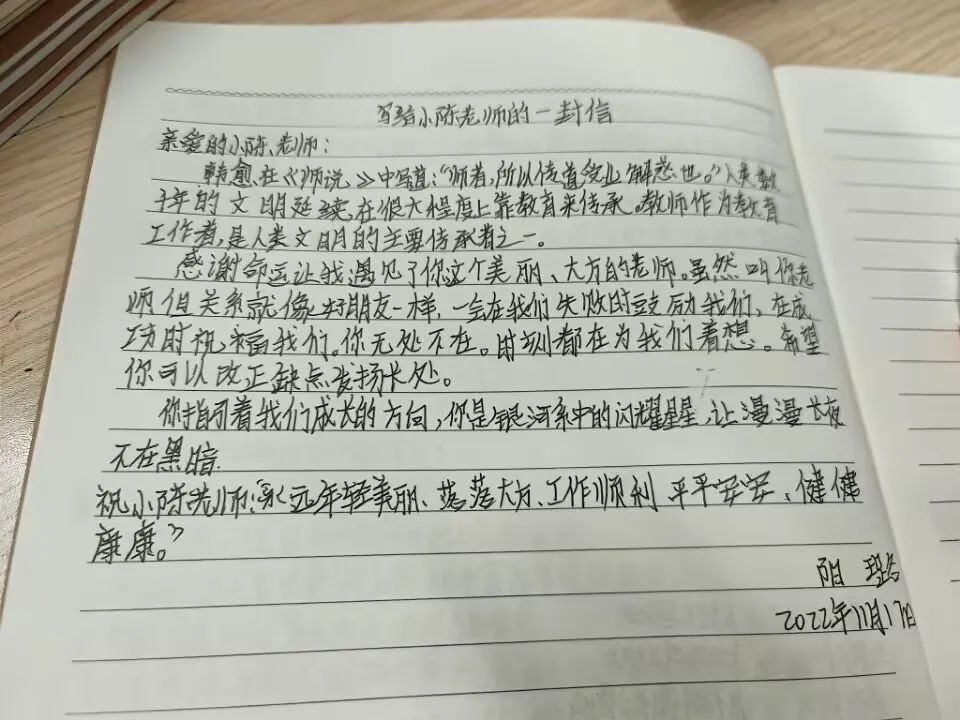 写给小陈老师的一封信
亲爱的小陈老师：
韩愈在《师说》中写道：“师者，所以传道受业解惑也。”人类数
千年的文明延续，在很大程度上靠教育来传承。教师作为教育
工作者，是人类文明的主要传承者之一。
感谢命运让我遇见了你这个美丽、大方的老师。虽然叫你老
师但关系就像好朋友一样，一会在我们失败时鼓励我们，在成
功时祝福我们。你无处不在。时刻都在为我们着想。希望
你可以改正缺点发扬长处。
你指引着我们成长的方向，你是银河系中的闪耀星星，让漫漫长夜
不在黑暗.
祝小陈老师：“永远年轻美丽、落落大方、工作顺利、平平安安、健健
康康。”
阳
2022年11月17日